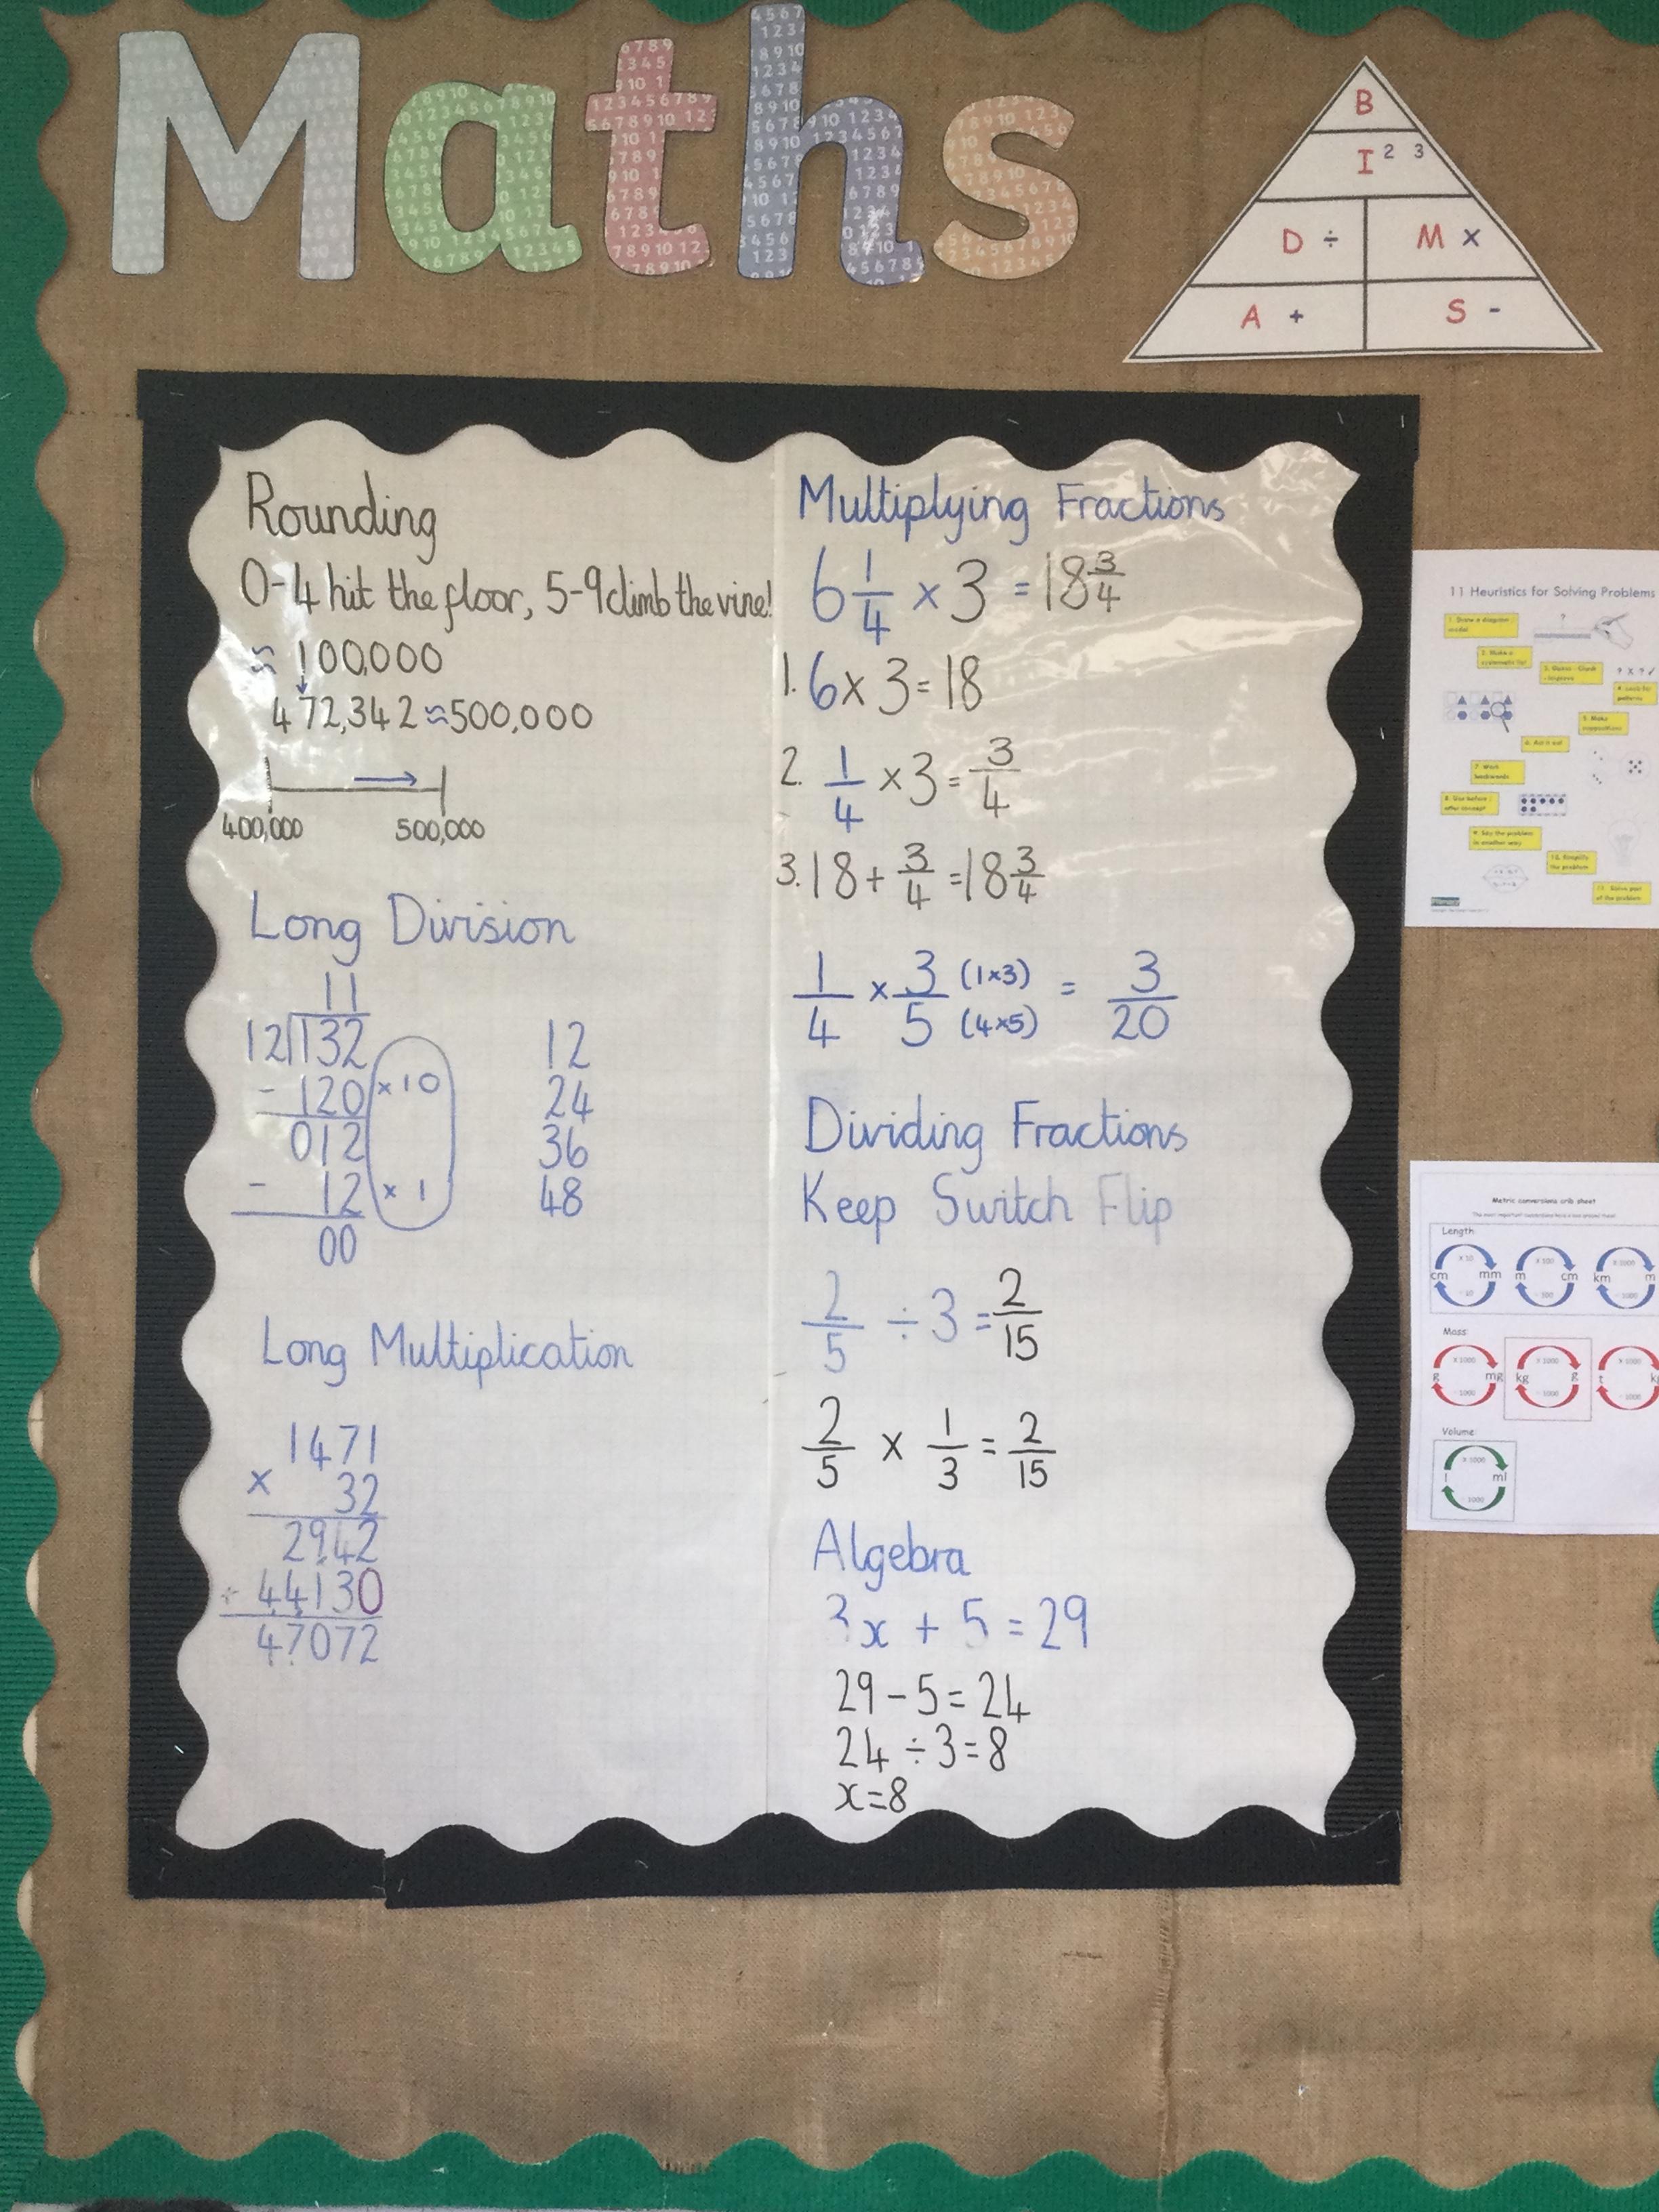 Maths
B
I 2 3
D ÷ M ×
A + S -
Rounding
0-4 hit the floor, 5-9 climb the vine!
≈ 100,000
472,342 ≈ 500,000
400,000 500,000
Long Division
11
12 132
- 120 ×10
012
- 12 × 1
00
12
24
36
48
Long Multiplication
1471
× 32
2942
+ 44130
47072
Multiplying Fractions
6 1/4 × 3 = 18 3/4
1. 6 × 3 = 18
2. 1/4 × 3 = 3/4
3. 18 + 3/4 = 18 3/4
1/4 × 3/5 (1×3) (4×5) = 3/20
Dividing Fractions
Keep Switch Flip
2/5 ÷ 3 = 2/15
2/5 × 1/3 = 2/15
Algebra
3x + 5 = 29
29 - 5 = 24
24 ÷ 3 = 8
x = 8
11 Heuristics for Solving Problems
1. Draw a diagram
model
2. Make a
systematic list
3. Guess - Check
- Improve
4. Look for
patterns
5. Make
suppositions
6. Act it out
7. Work
backwards
8. Use before /
after concept
9. Say the problem
in another way
10. Simplify
the problem
11. Solve part
of the problem
Metric conversions crib sheet
Length:
× 10
cm mm
÷ 10
× 100
m cm
÷ 100
× 1000
km m
÷ 1000
Mass:
× 1000
g mg
÷ 1000
× 1000
kg g
÷ 1000
× 1000
t
÷ 1000
Volume:
× 1000
l ml
÷ 1000